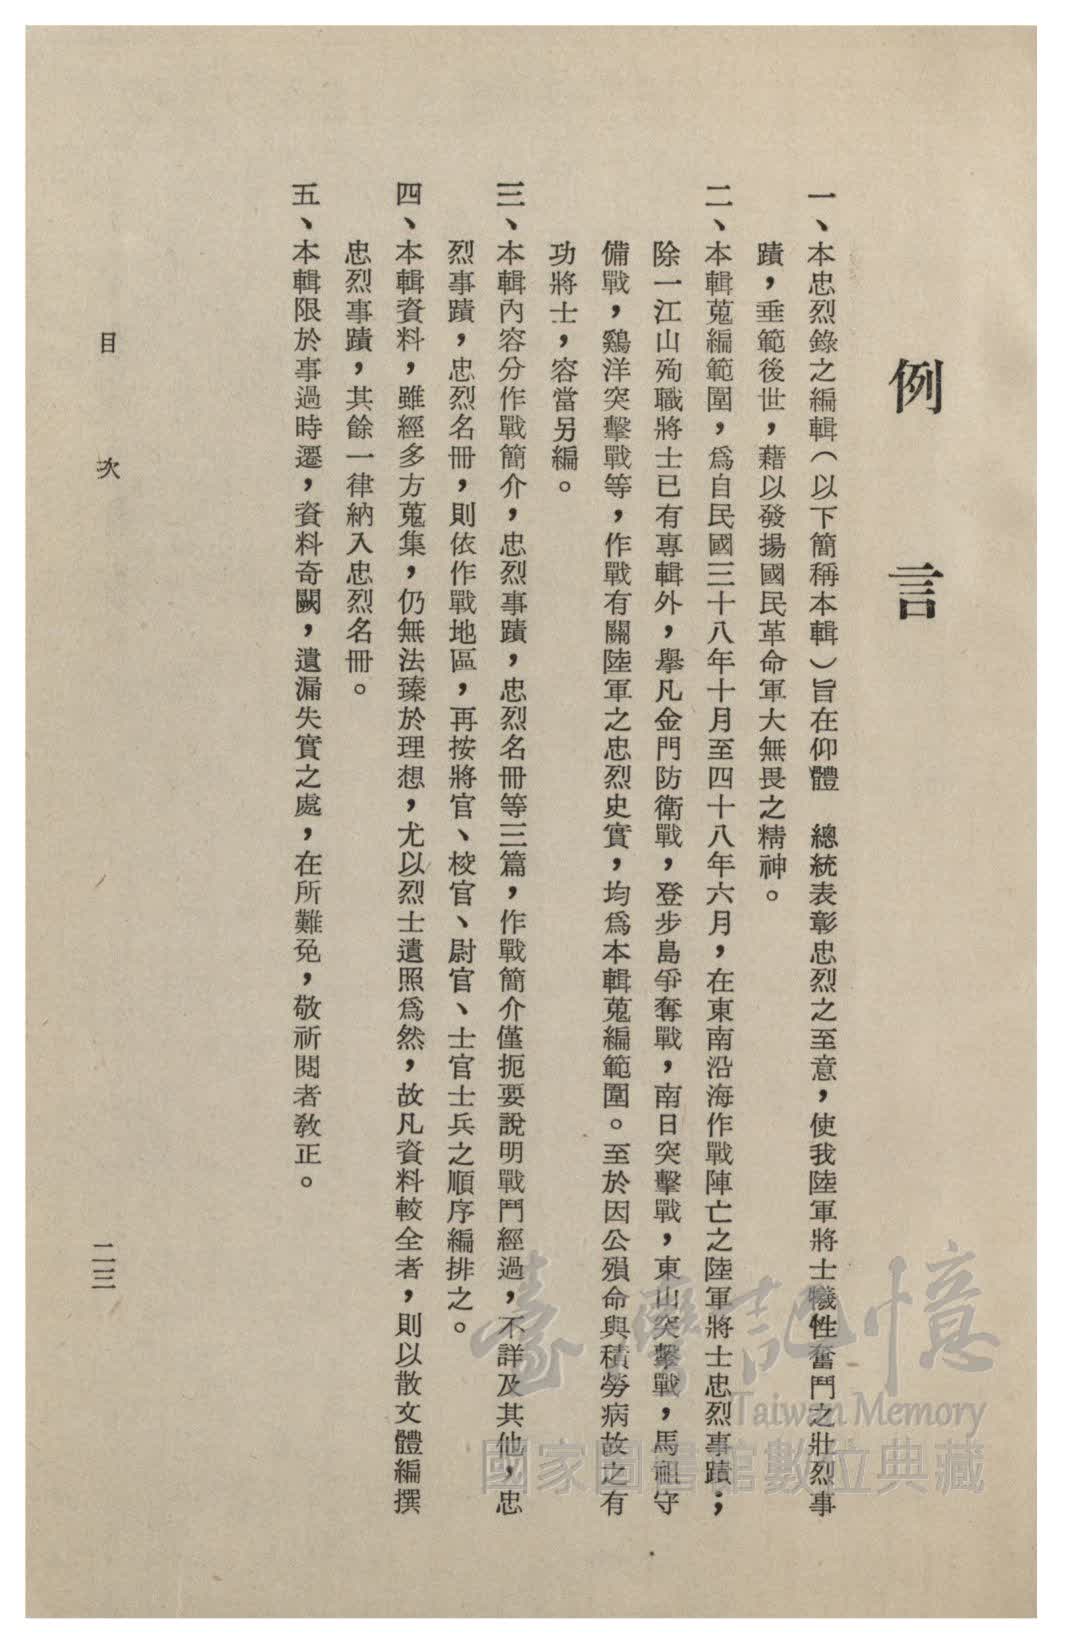 例言
一、本忠烈錄之編輯（以下簡稱本輯）旨在仰體　總統表彰忠烈之至意，使我陸軍將士犧牲奮鬥之壯烈事
蹟，垂範後世，藉以發揚國民革命軍大無畏之精神。
二、本輯蒐編範圍，爲自民國三十八年十月至四十八年六月，在東南沿海作戰陣亡之陸軍將士忠烈事蹟；
除一江山殉職將士已有專輯外，舉凡金門防衛戰，登步島爭奪戰，南日突擊戰，東山突擊戰，馬祖守
備戰，鷄洋突擊戰等，作戰有關陸軍之忠烈史實，均爲本輯蒐編範圍。至於因公殞命與積勞病故之有
功將士，容當另編。
三、本輯內容分作戰簡介，忠烈事蹟，忠烈名冊等三篇，作戰簡介僅扼要說明戰鬥經過，不詳及其他，忠
烈事蹟，忠烈名冊，則依作戰地區，再按將官、校官、尉官、士官士兵之順序編排之。
四、本輯資料，雖經多方蒐集，仍無法臻於理想，尤以烈士遺照爲然，故凡資料較全者，則以散文體編撰
忠烈事蹟，其餘一律納入忠烈名冊。
五、本輯限於事過時遷，資料奇闕，遺漏失實之處，在所難免，敬祈閱者教正。
目次
二三
臺灣記憶
Taiwan Memory
國家圖書館數位典藏